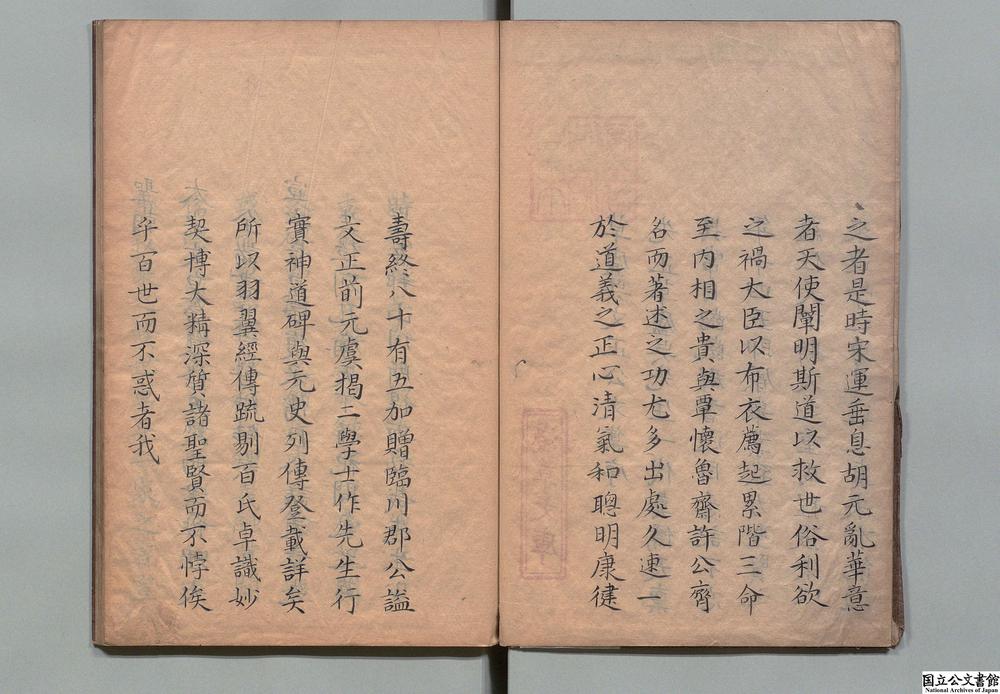 之者是時宋運垂息胡元亂華意
者天使闡明斯道以救世俗利欲
之禍大臣以布衣薦起累階三命
至內相之貴與覃懷魯齋許公齊
名而著述之功尤多出處久速一
於道義之正心清氣和聰明康健
壽終八十有五加贈臨川郡公謚
文正前元虞揭二學士作先生行
實神道碑與元史列傳登載詳矣
所以羽翼經傳疏剔百氏卓識妙
契博大精深質諸聖賢而不悖俟
乎百世而不惑者我
国立公文書館
National Archives of Japan